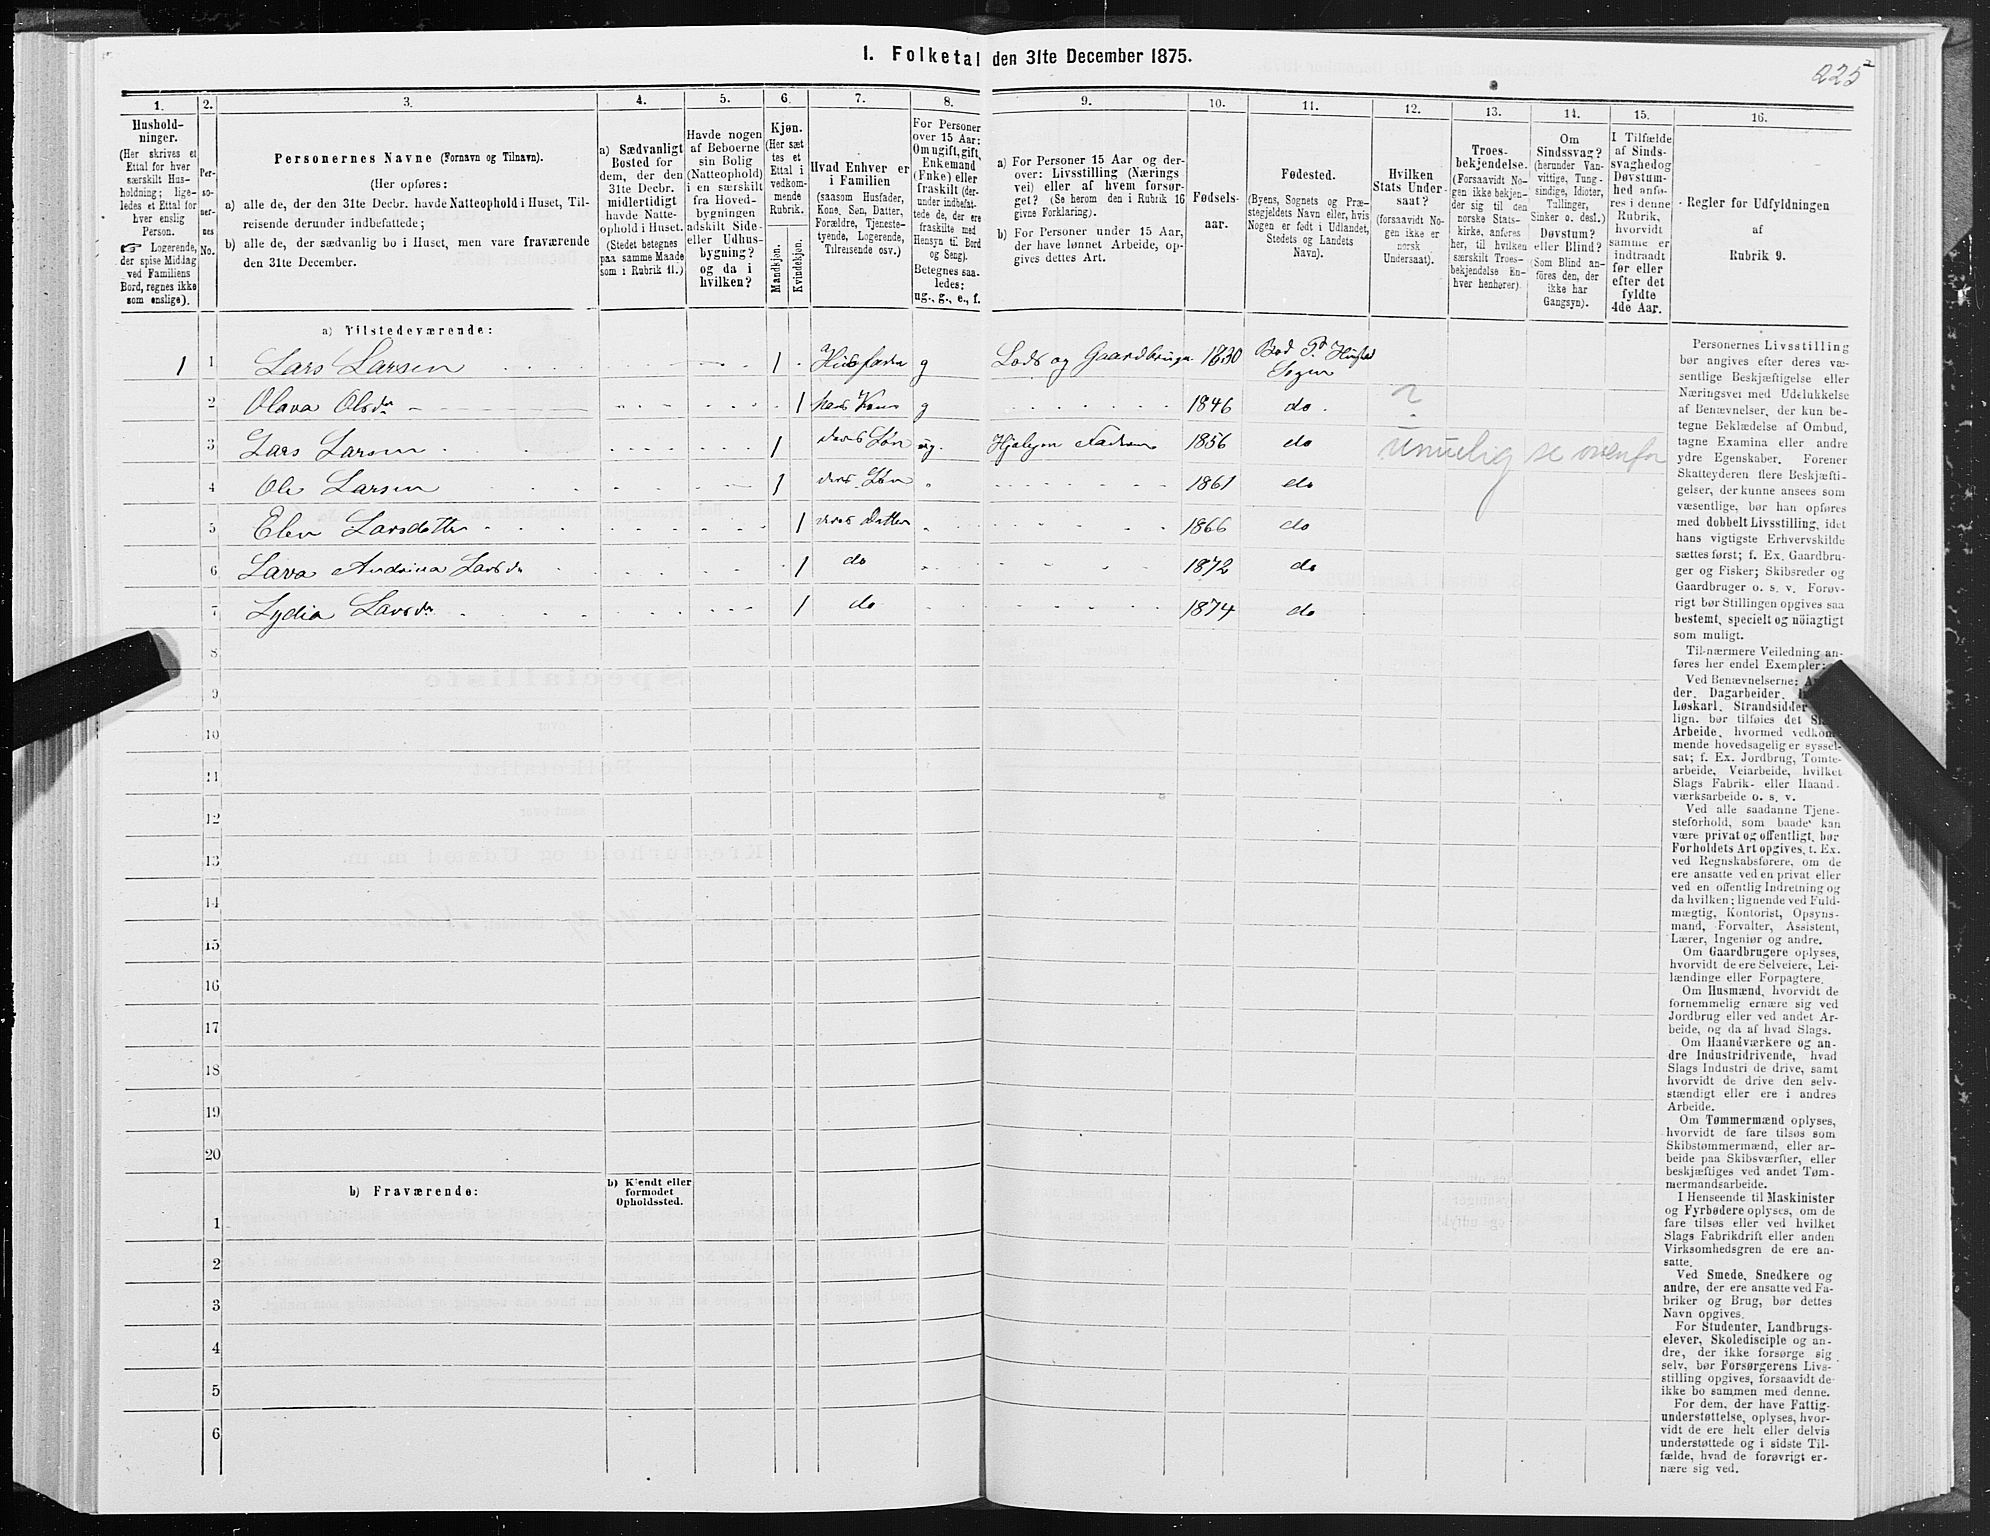 I. Folketal den 31te December 1875.
225
1.
Hushold-
ninger.
(Her skrives et
Ettal for hver
særskilt Hus-
holdning; lige-
ledes et Ettal for
hver enslig
Person.
☞ Logerende,
der spise Middag
ved Familiens
Bord, regnes ikke
som enslige).
2.
Per-
so-
ner-
nes
No.
3.
Personernes Navne (Fornavn og Tilnavn).
(Her opføres:
a) alle de, der den 31te Decbr. havde Natteophold i Huset, Til-
reisende derunder indbefattede;
b) alle de, der sædvanlig bo i Huset, men vare fraværende
den 31te December.
4.
a) Sædvanligt
Bosted for
dem, der den
31te Decbr.
midlertidigt
havde Natte-
ophold i Huset.
(Stedet betegnes
paa samme Maade
som i Rubrik 11.)
5.
Havde nogen
af Beboerne
sin Bolig
(Natteophold)
i en særskilt
fra Hoved-
bygningen
adskilt Side-
eller Udhus-
bygning?
og da i
hvilken?
6.
Kjøn.
(Her sæt
tes et
Ettal i
vedkom-
mende
Rubrik.
Mandkjøn.
Kvindekjøn.
7.
Hvad Enhver er
i Familien
(saasom Husfader,
Kone, Søn, Datter,
Forældre, Tjeneste-
tyende, Logerende,
Tilreisende osv.)
8.
For Personer
over 15 Aar:
Om ugift, gift,
Enkemand
(Enke) eller
fraskilt (der-
under indbefat-
tede de, der ere
fraskilte med
Hensyn til Bord
og Seng).
Betegnes saa-
ledes:
ug., g., e., f.
9.
a) For Personer 15 Aar og der-
over: Livsstilling (Nærings
vei) eller af hvem forsør-
get? (Se herom den i Rubrik 16
givne Forklaring).
b) For Personer under 15 Aar,
der have lønnet Arbeide, op-
gives dettes Art.
10.
Fødsels-
aar.
11.
Fødested.
(Byens, Sognets og Præ-
stegjeldets Navn eller, hvis
Nogen er født i Udlandet,
Stedets og Landets
Navn).
12.
Hvilken
Stats Under-
saat?
(forsaavidt No-
gen ikke er
norsk
Undersaat).
13.
Troes-
bekjendelse.
(Forsaavidt No-
gen ikke bekjen-
der sig til den
norske Stats-
kirke, anføres
her, til hvilken
særskilt Troes-
bekjendelse En-
hver henhører).
14.
Om
Sindssvag?
(herunder Van-
vittige, Tung-
sindige, Idioter,
Tullinger,
Sinker o. desl.)
Døvstum?
eller Blind?
(Som Blind an-
føres den, der
ikke har
Gangsyn).
15.
I Tilfælde
af Sinds-
svaghed og
Døvstum-
hed anfø-
res i denne
Rubrik,
hvorvidt
samme er
indtraadt
før eller
efter det
fyldte
4de Aar.
16.
Regler for Udfyldningen
af
Rubrik 9.
a) Tilstedeværende:
1 1 Lars Larsen 1 Husfader g Lods og Gaardbruger 1830 Bod Pr Hustad
Sogn
2 Olava Olsdr 1 hans Kone g 1846 do.
3 Lars Larsen 1 deres Søn ug. Hjælper Faderen 1856 do umuelig se ovenfor
4 Ole Larsen 1 deres Søn 1861 do
5 Elen Larsdatter 1 deres Datter 1866 do
6 Lava Andrina Larsdr 1 do 1872 do
7 Lydia Larsdr 1 do 1874 do
8
9
10
11
12
13
14
15
16
17
18
19
20
b) Fraværende:
b) Kjendt eller
formodet
Opholdssted.
1
2
3
4
5
6
Personernes Livsstilling
bør angives efter deres væ-
sentlige Beskjæftigelse eller
Næringsvei med Udelukkelse
af Benævnelser, der kun be-
tegne Beklædelse af Ombud,
tagne Examina eller andre
ydre Egenskaber. Forener
Skatteyderen flere Beskjæfti-
gelser, der kunne ansees som
væsentlige, bør han opføres
med dobbelt Livsstilling, idet
hans vigtigste Erhvervskilde
sættes først; f. Ex. Gaardbru-
ger og Fisker; Skibsreder og
Gaardbruger o. s. v. Forøv-
rigt bør Stillingen opgives saa
bestemt, specielt og nöiagtigt
som muligt.
Til nærmere Veiledning an-
føres her endel Exempler:
Ved Benævnelserne:
der, Dagarbeider,
Løskarl, Strandsidder
lign. bør tilføies det
Arbeide, hvormed vedkom-
mende hovedsagelig er syssel-
sat; f. Ex. Jordbrug, Tomte-
arbeide, Veiarbeide, hvilket
Slags Fabrik- eller Haand-
værksarbeide o. s. v.
Ved alle saadanne Tjene-
steforhold, som baade kan
være privat og offentligt, bør
Forholdets Art opgives, f. Ex.
ved Regnskabsførere, om de
ere ansatte ved en privat eller
ved en offentlig Indretning og
da hvilken; lignende ved Fuld-
mægtig, Kontorist, Opsyns-
mand, Forvalter, Assistent,
Lærer, Ingeniør og andre.
Om Gaardbrugere oplyses,
hvorvidt de ere Selveiere, Lei-
lændinge eller Forpagtere.
Om Husmænd, hvorvidt de
fornemmelig ernære sig ved
Jordbrug eller ved andet Ar-
beide, og da af hvad Slags.
Om Haandværkere og an-
dre Industridrivende, hvad
Slags Industri de drive, samt
hvorvidt de drive den selv-
stændigt eller ere i andres
Arbeide.
Om Tømmermænd oplyses,
hvorvidt de fare tilsøs som
Skibstømmermænd, eller ar-
beide paa Skibsværfter, eller
beskjæftiges ved andet Tøm-
mermandsarbeide.
I Henseende til Maskinister
og Fyrbødere oplyses, om de
fare tilsøs eller ved hvilket
Slags Fabrikdrift eller anden
Virksomhedsgren de ere an-
satte.
Ved Smede, Snedkere og
andre, der ere ansatte ved Fa-
briker og Brug, bør dettes
Navn opgives.
For Studenter, Landbrugs-
elever, Skoledisciple og an-
dre, der ikke forsørge sig
selv, bør Forsørgerens Livs-
stilling opgives, forsaavidt de
ikke bo sammen med denne.
For dem, der have Fattig-
understøttelse, oplyses, hvor-
vidt de ere helt eller delvis
understøttede og i sidste Til-
fælde, hvad de forøvrigt er-
nære sig ved.